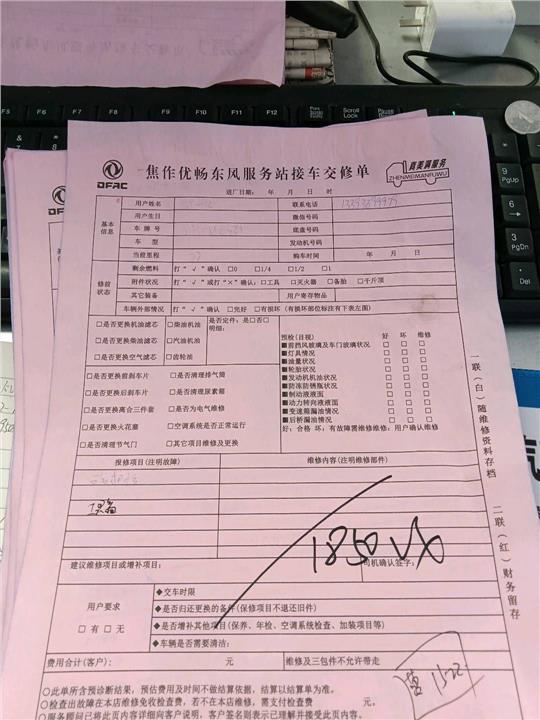 F5 F6 F7 F8 F9 F10 F11 F12
Scroll Lock
9 PgUp
6
3 PgDn
DFAC
焦作优畅东风服务站接车交修单
真美满服务
ZHENMEIMANFUWU
送厂日期： 年 月 日 时
基本信息
用户姓名 联系电话
用户生日 微信号码
车牌号 底盘号码
车型 发动机号码
当前里程 购车时间 年 月 日
修前状态
剩余燃料 打“√”确认 □0 □1/4 □1/2 □1
附件状况 打“√”或打“×”确认：□工具 □灭火器 □备胎 □千斤顶
其它装备 用户寄存物品
车辆外部情况 打“√”确认 □完好 □有损坏（有损坏部位标注有下表左面）
□是否更换机油滤芯 □柴油机油
□是否更换柴油滤芯 □汽油机油
□是否更换空气滤芯 □齿轮油
是否定件：是□否□
明细：
□是否更换前刹车片 □是否清理排气筒
□是否更换后刹车片 □是否清理尿素箱
□是否更换离合三件套 □是否为电气维修
□是否更换火花塞 □空调系统是否正常运行
□是否清理节气门 □其它项目维修及更换
预检(目视) 好 坏 维修
■前挡风玻璃及车门玻璃状况 □ □ □
■灯具情况 □ □ □
■油量状况 □ □ □
■轮胎状况 □ □ □
■发动机机油状况 □ □ □
■防冻防锈瓶状况 □ □ □
■制动液液面 □ □ □
■动力转向液液面 □ □ □
■变速箱漏油情况 □ □ □
■后桥漏油情况 □ □ □
好：合格 坏：有故障需维修维修：用户确认维修
报修项目(注明故障) 维修内容(注明维修部件)
1850
建议维修项目或增补项目： 司机确认签字：
用户要求
□有 □无
◆交车时限
◆是否归还更换的备件(保修项目不退还旧件)
◆是否增补其他项目(保养、年检、空调系统检查、加装项目等)
◆车辆是否需要清洁：
费用合计(客户)： 元 维修及三包件不允许带走
◇此单所含预诊断结果，预估费用及时间不做结算依据，结算以结算单为准。
◎检查出故障在本店维修免收检查费，若不在本店维修，需支付检查费 元。
◎服务顾问已将此页内容详细向客户说明，客户签名则表示已理解并接受此页内容。
一联（白）随维修资料存档
二联（红）财务留存